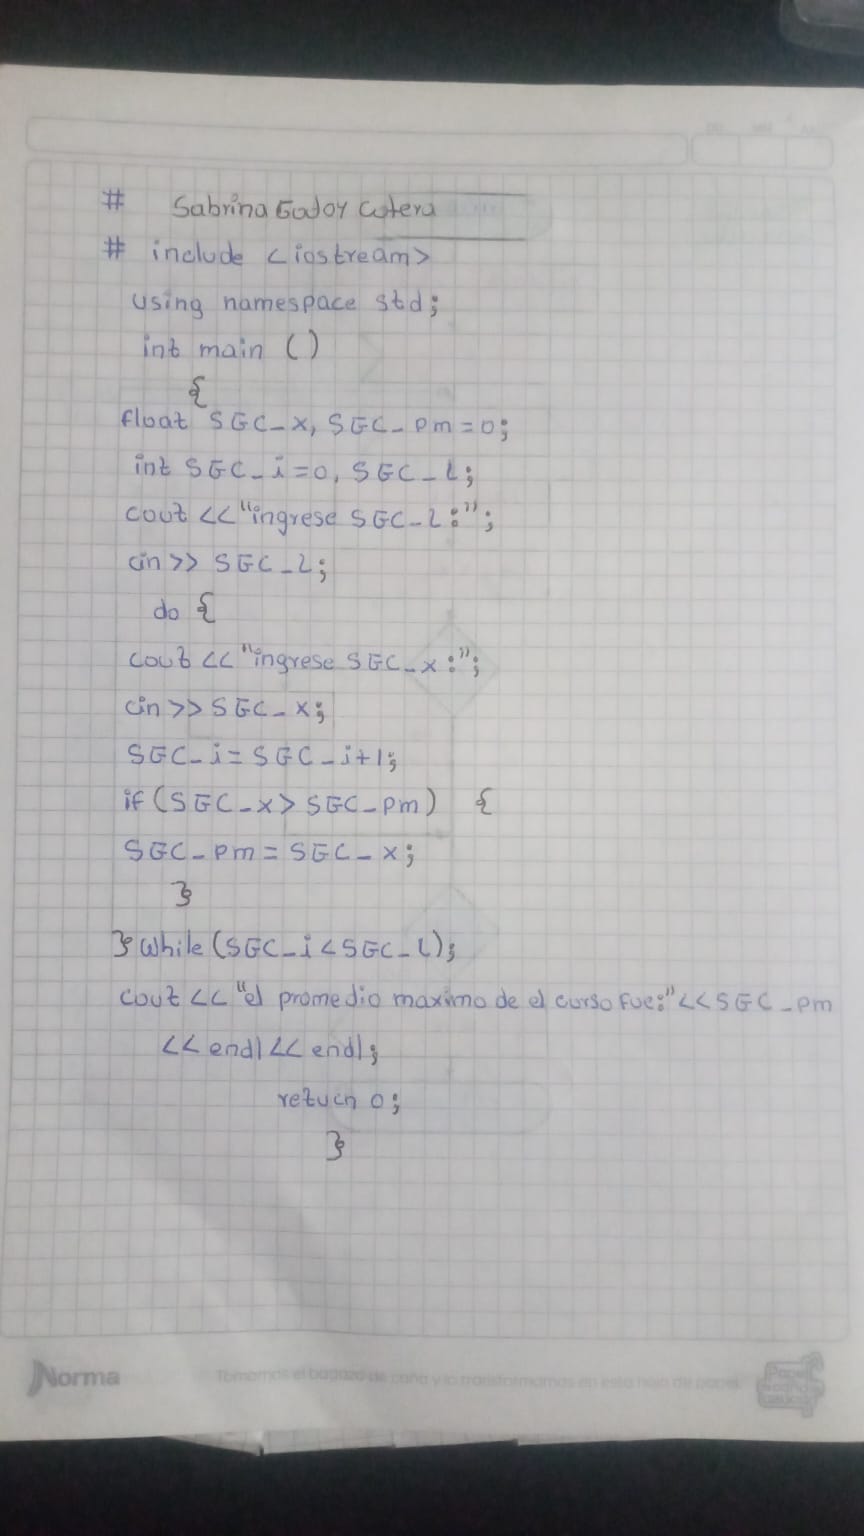 # Sabrina Godoy Cotera
# include <iostream>
using namespace std;
int main ()
{
float SGC_x, SGC_pm=0;
int SGC_i=0, SGC_L;
cout <<"ingrese SGC_L:";
cin>> SGC_L;
do {
cout <<"ingrese SGC_x:";
cin>> SGC_x;
SGC_i= SGC_i+1;
if (SGC_x> SGC_pm) {
SGC_pm= SGC_x;
}
} while (SGC_i<SGC_L);
cout << "el promedio maximo de el curso fue:"<<SGC_pm
<< endl<< endl;
return 0;
}
Norma
Tomamos el bagazo de caña y lo transformamos en esta hoja de papel